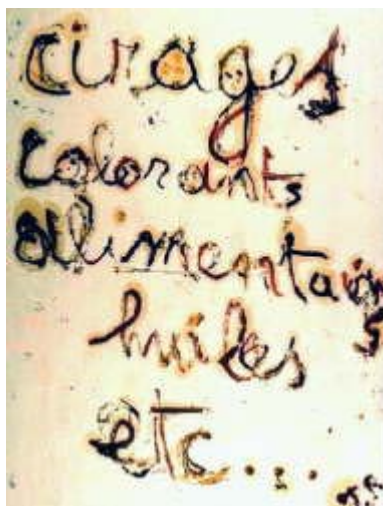 cirages
colorants
alimentaires
huiles
etc....